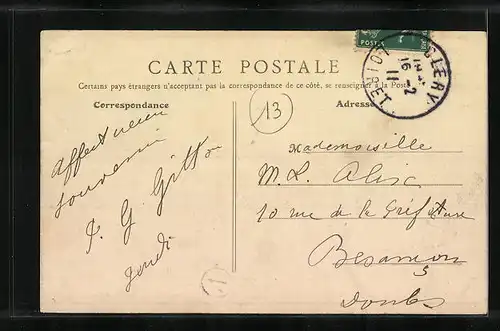 CARTE POSTALE
Certains pays étrangers n'acceptent pas la correspondance de ce côté, se renseigner à la Poste
Correspondance
Adresse
13
CLERY
16-2
11
LOIRET
POSTES
Affectueux
souvenir
G. Gitton
Jeudi
1
Mademoiselle
M. L. Alix
10 rue de la Préfecture
Besançon
Doubs